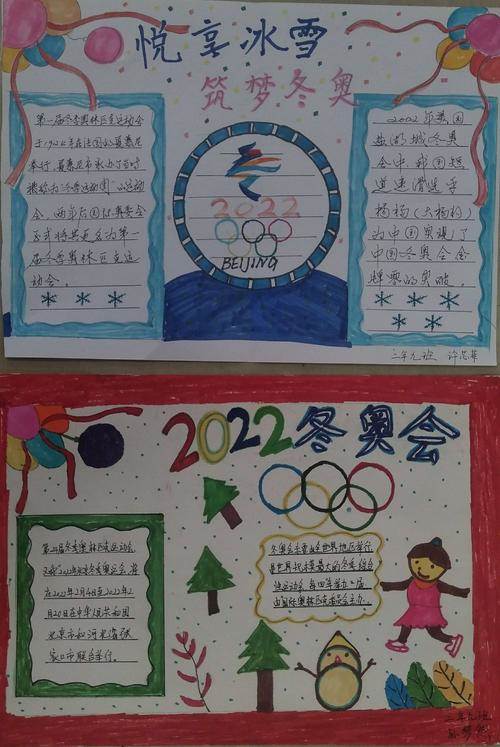 悦享冰雪
筑梦冬奥
第一届冬季奥林匹克运动会
于1924年在法国的夏慕尼
举行,夏慕尼市承办了当时
被称为"冬季运动周"的运动
会,两年后国际奥委会
正式将其更名为第一
届冬季奥林匹克运
动会。
2022
BEIJING
2002年美国
盐湖城冬奥
会中,我国短
道速滑选手
杨扬(大杨扬)
为中国实现了
中国冬奥会金
牌零的突破。
三年九班
2022冬奥会
第24届冬季奥林匹克运动会,
又称2022年北京冬季奥运会,将
在2022年2月4日至2022年2
月20日在中华人民共和国
北京市和河北省张
家口市联合举行。
冬奥会主要由全世界地区举行,
是世界规模最大的冬季综合
性运动会,每四年举办一届
由国际奥林匹克委员会主办。
三年九班